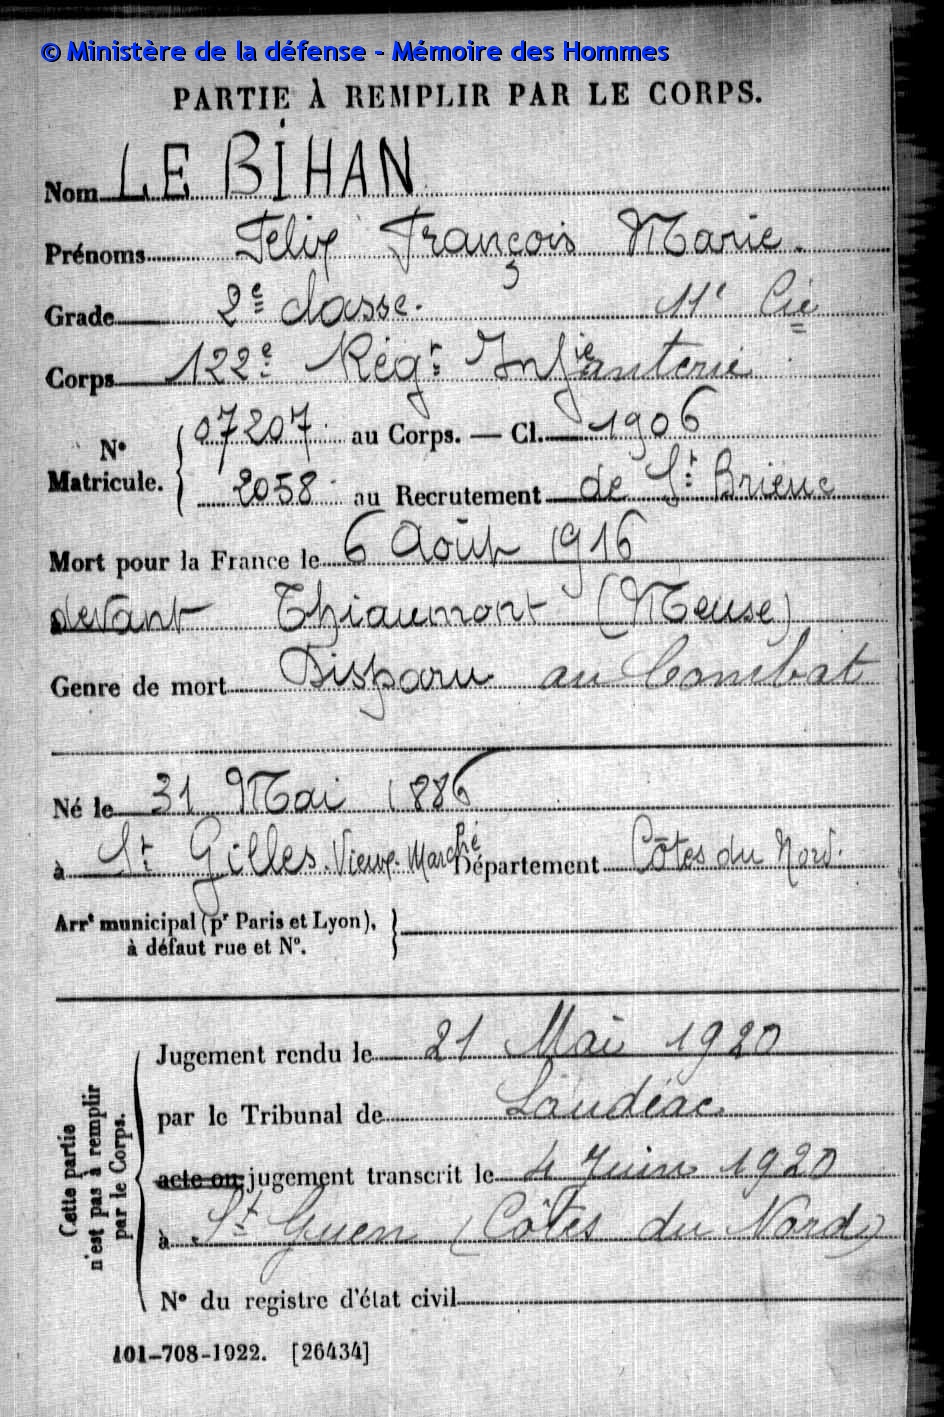 © Ministère de la défense - Mémoire des Hommes
PARTIE À REMPLIR PAR LE CORPS.
Nom LE BIHAN
Prénoms Félix François Marie.
Grade 2e classe. 11e Cie
Corps 122e Régt Infanterie
N° Matricule. { 07207 au Corps. — Cl. 1906
2058 au Recrutement de St Brieuc
Mort pour la France le 6 Août 1916
devant Thiaumont (Meuse)
Genre de mort Disparu au Combat
Né le 31 Mai 1886
à St Gilles-Vieux-Marché Département Côtes du Nord.
Arrt municipal (pr Paris et Lyon), }
à défaut rue et N°.
Cette partie n'est pas à remplir par le Corps.
Jugement rendu le 21 Mai 1920
par le Tribunal de Loudéac
acte ou jugement transcrit le 4 Juin 1920
à St Guen (Côtes du Nord)
N° du registre d'état civil
101-708-1922. [26434]